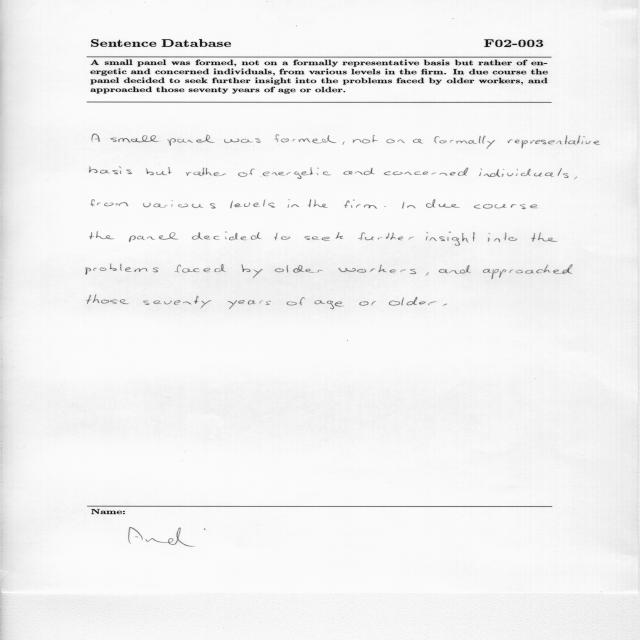 Sentence Database F02-003
A small panel was formed, not on a formally representative basis but rather of en-
ergetic and concerned individuals, from various levels in the firm. In due course the
panel decided to seek further insight into the problems faced by older workers, and
approached those seventy years of age or older.
A small panel was formed, not on a formally representative
basis but rather of energetic and concerned individuals,
from various levels in the firm. In due course
the panel decided to seek further insight into the
problems faced by older workers, and approached
those seventy years of age or older.
Name:
Andi